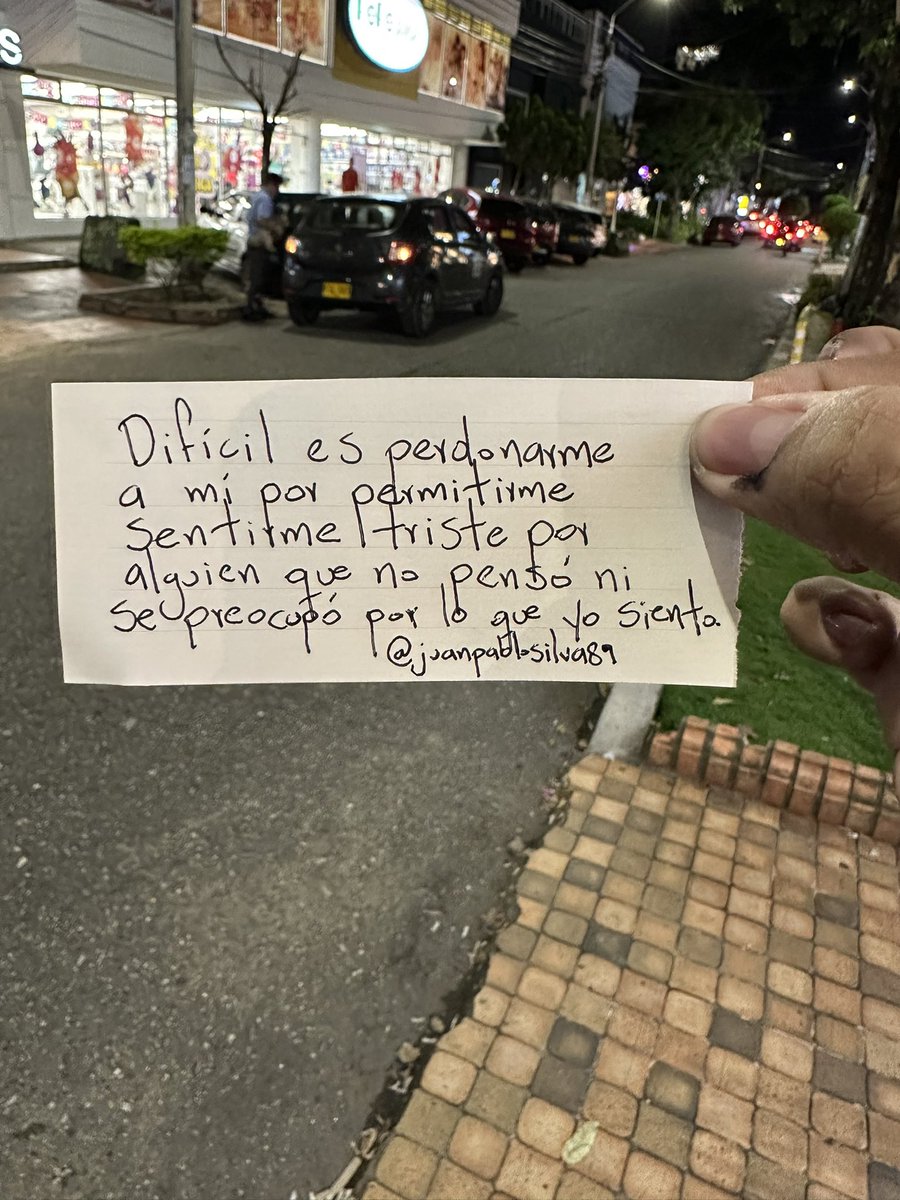 Difícil es perdonarme
a mí por permitirme
sentirme triste por
alguien que no pensó ni
se preocupó por lo que yo siento.
@juanpablosilva89